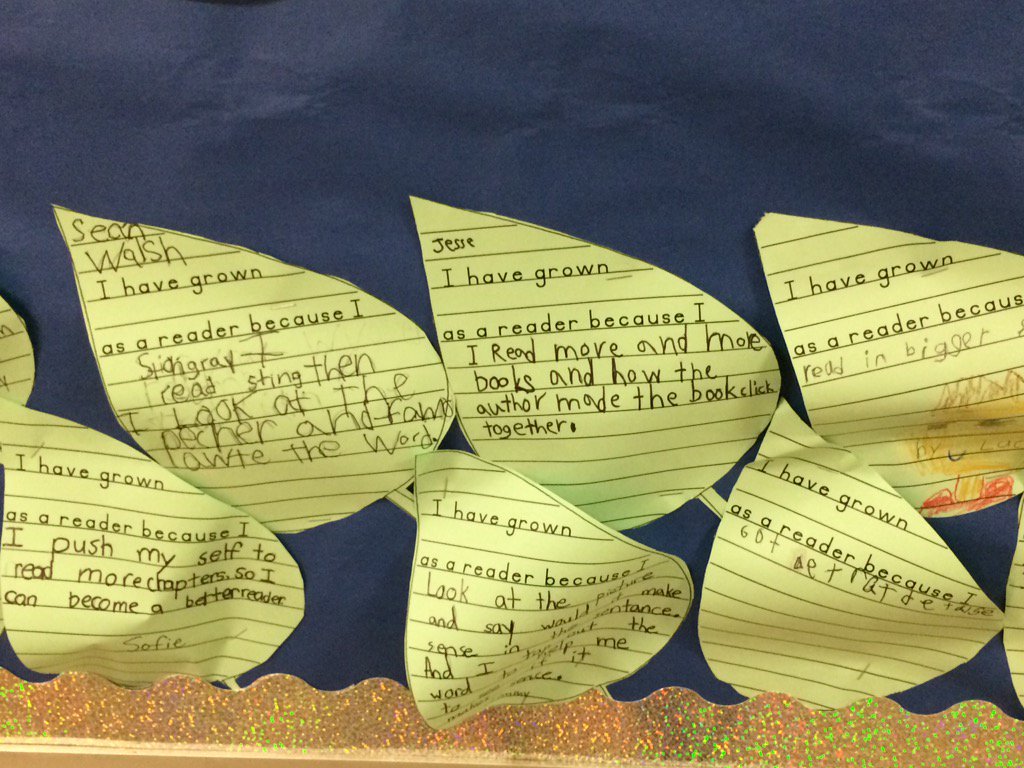 Sean
Walsh
I have grown
as a reader because I
I
read sting then
I Look at the
pecher and
the word.
Jesse
I have grown
as a reader because I
I Read more and more
books and how the
author made the book click
together.
I have grown
as a reader because
read in bigger
I have grown
as a reader because I
I push my self to
read more chapters. so I
can become a better reader
Sofie
I have grown
as a reader because I
Look at the picture
and say would it make
sense in the sentance.
And I the
word to help me
I have grown
as a reader because I
got